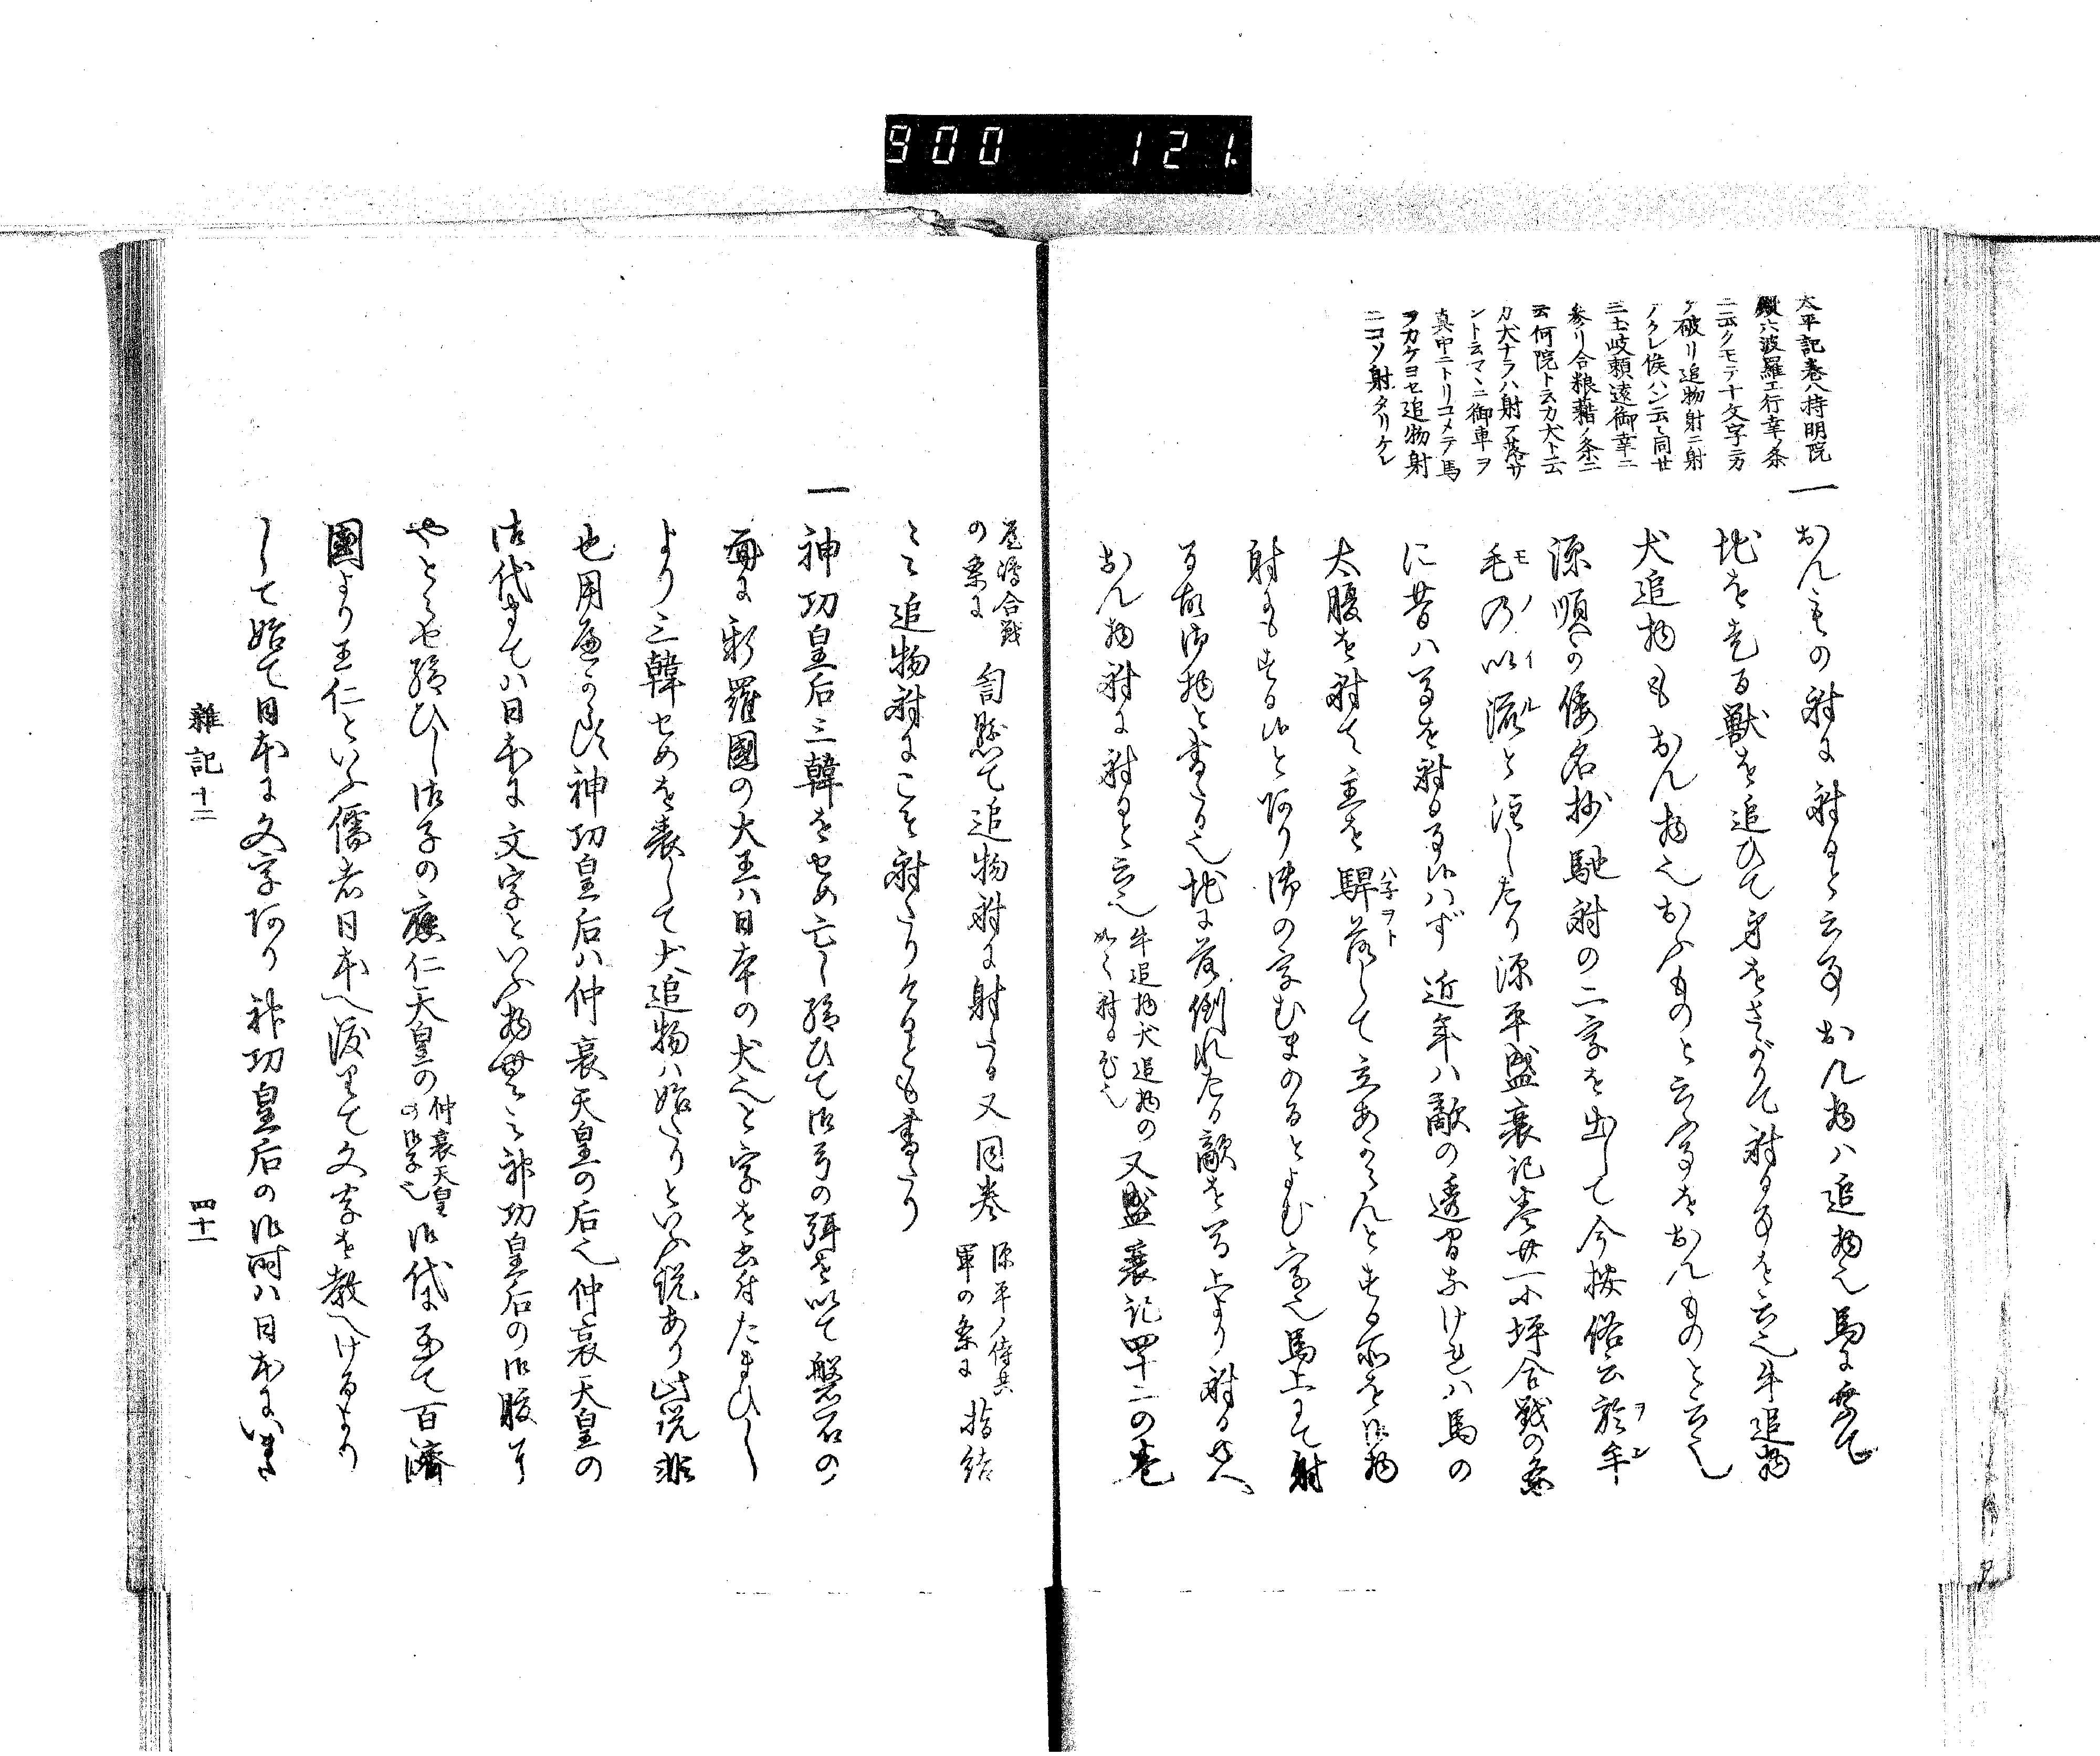 900 121
太平記巻八持明院
殿六波羅エ行幸ノ条
ニ云クモテ十文字ニカ
ケ破リ追物射ニ射
ノクレ候ハン云々同廿
三土岐頼遠御幸ニ
参リ合狼藉ノ条ニ
云何院ト云カ犬ト云
カ犬ナラハ射テ落サ
ントマヽニ御車ヲ
真中ニトリコメテ馬
ヲカケヨセ追物射
ニコソ射タリケレ
一 おんもの射に射ると云事おん物ハ追物也馬に乗て
地を走る獣を追ひて身をさがりて射る事を云也牛追物
犬追物もおん物也おふものと云事をおんものと云也
源順の倭名抄馳射の二字を出して今按俗云於牟
毛乃以流と注したり源平盛衰記巻廿一小坪合戦の条
に昔ハ馬を射る事候ハず近年ハ敵の透間なけれハ馬の
太腹を射て主を駻落して立あからんとする所を御物
射にもする候とあり御の字むまのるとよむ字也馬上にて射
る故御物と書る也地に落倒れたる敵を馬上より射るゆへ
おん物射に射ると云也 牛追物犬追物の 如く射る也 又盛衰記四十二の巻
屋嶋合戦 の条に 匐懸て追物射に射たる又同巻 源平ノ侍共 軍の条に 指詰
〱追物射にこそ射たりけるとも書たり
一 神功皇后三韓をせめ亡し給ひて御弓の弭を以て磐石の
面に新羅國の大王ハ日本の犬也と字を書付たまひし
より三韓せめを表して犬追物ハ始たりといふ説あり此説非
也用べからず神功皇后ハ仲哀天皇の后也仲哀天皇の
御代まてハ日本に文字といふ物無之神功皇后の御腹に
やとらせ給ひし御子の應仁天皇の 仲哀天皇 の御子也 御代に至て百濟
國より王仁といふ儒者日本へ渡りて文字を教へけるより
して始て日本に文字あり神功皇后の御時ハ日本にいまた
雜記十二 四十一